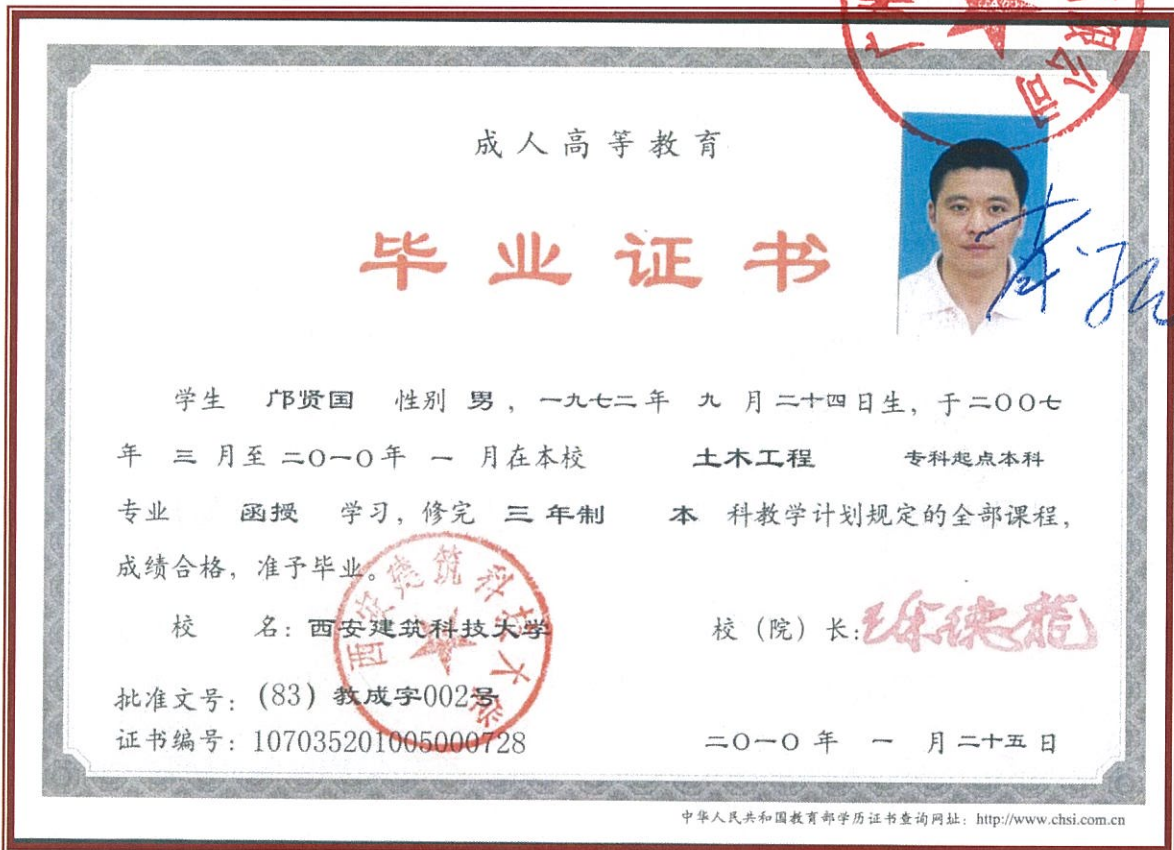 成人高等教育
毕业证书
学生 邝贤国 性别 男，一九七二年 九 月二十四日生，于二〇〇七
年 三 月至 二〇一〇年 一 月在本校 土木工程 专科起点本科
专业 函授 学习，修完 三年制 本 科教学计划规定的全部课程，
成绩合格，准予毕业。
校 名：西安建筑科技大学
校（院）长：徐德龙
西安建筑科技大学
批准文号：(83) 教成字002号
证书编号：107035201005000728
二〇一〇年 一 月二十五日
中华人民共和国教育部学历证书查询网址：http://www.chsi.com.cn